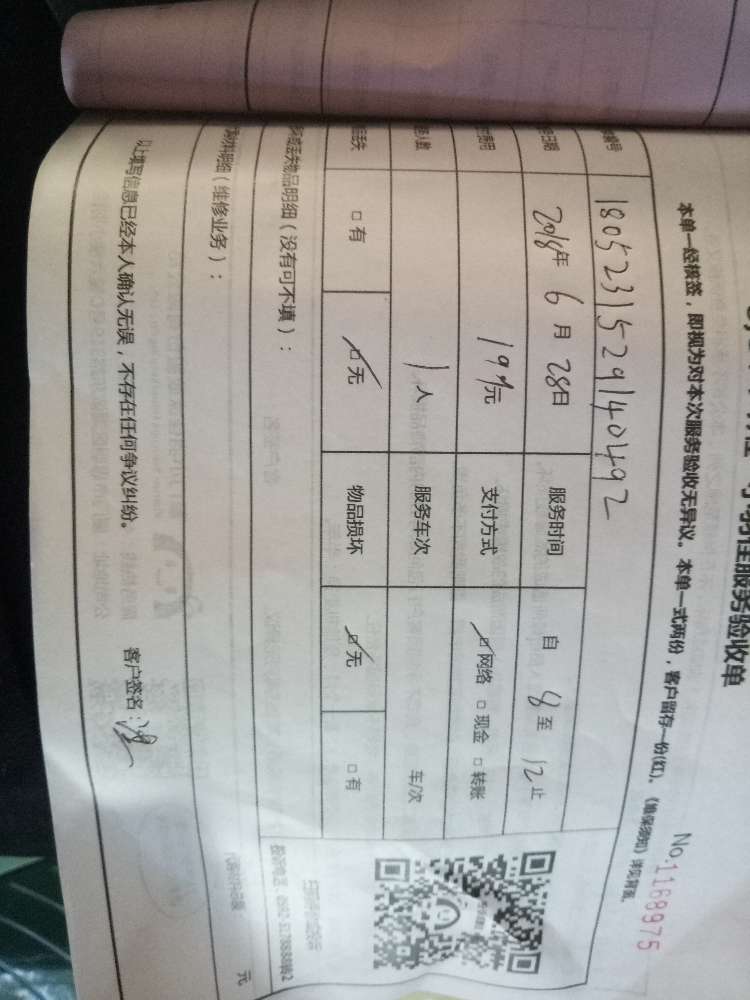 服务验收单
No.1168975
本单一经核签，即视为对本次服务验收无异议。本单一式两份，客户留存一份(红)。《维保须知》详见背面。
编号 18052315291404 92
日期 2018年 6月 28日 服务时间 自 8 至 12 止
费用 199元 支付方式 ☑网络 □现金 □转账
人数 1人 服务车次 车/次
丢失 □有 ☑无 物品损坏 ☑无 □有
丢失物品明细（没有可不填）：
材料明细（维修业务）：
元
以上填写信息已经本人确认无误，不存在任何争议纠纷。 客户签名：